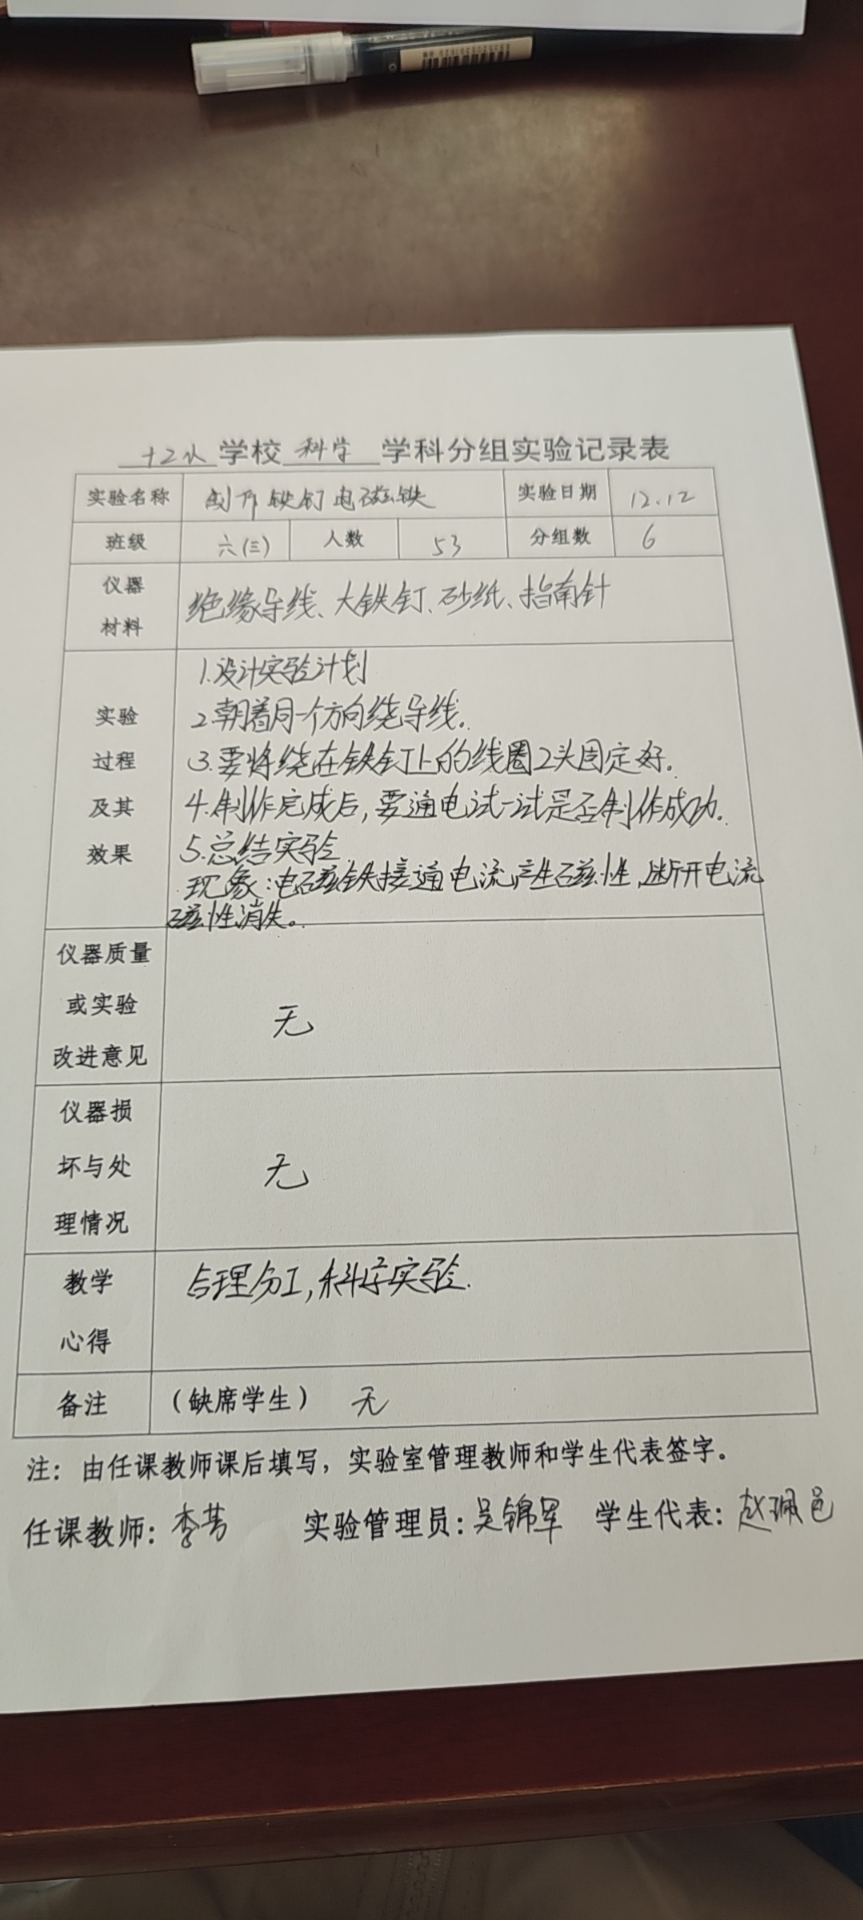 十二小学校 科学 学科分组实验记录表
实验名称 制作铁钉电磁铁 实验日期 12.12
班级 六(三) 人数 53 分组数 6
仪器材料 绝缘导线、大铁钉、砂纸、指南针
实验过程及其效果
1.设计实验计划
2.朝着同一个方向绕导线。
3.要将绕在铁钉上的线圈2头固定好.
4.制作完成后,要通电试一试是否制作成功.
5.总结实验
现象:电磁铁接通电流产生磁性,断开电流
磁性消失。
仪器质量或实验改进意见 无
仪器损坏与处理情况 无
教学心得 合理分工,科学实验.
备注 (缺席学生) 无
注：由任课教师课后填写，实验室管理教师和学生代表签字。
任课教师：李芳 实验管理员：吴锦军 学生代表：赵珮邑